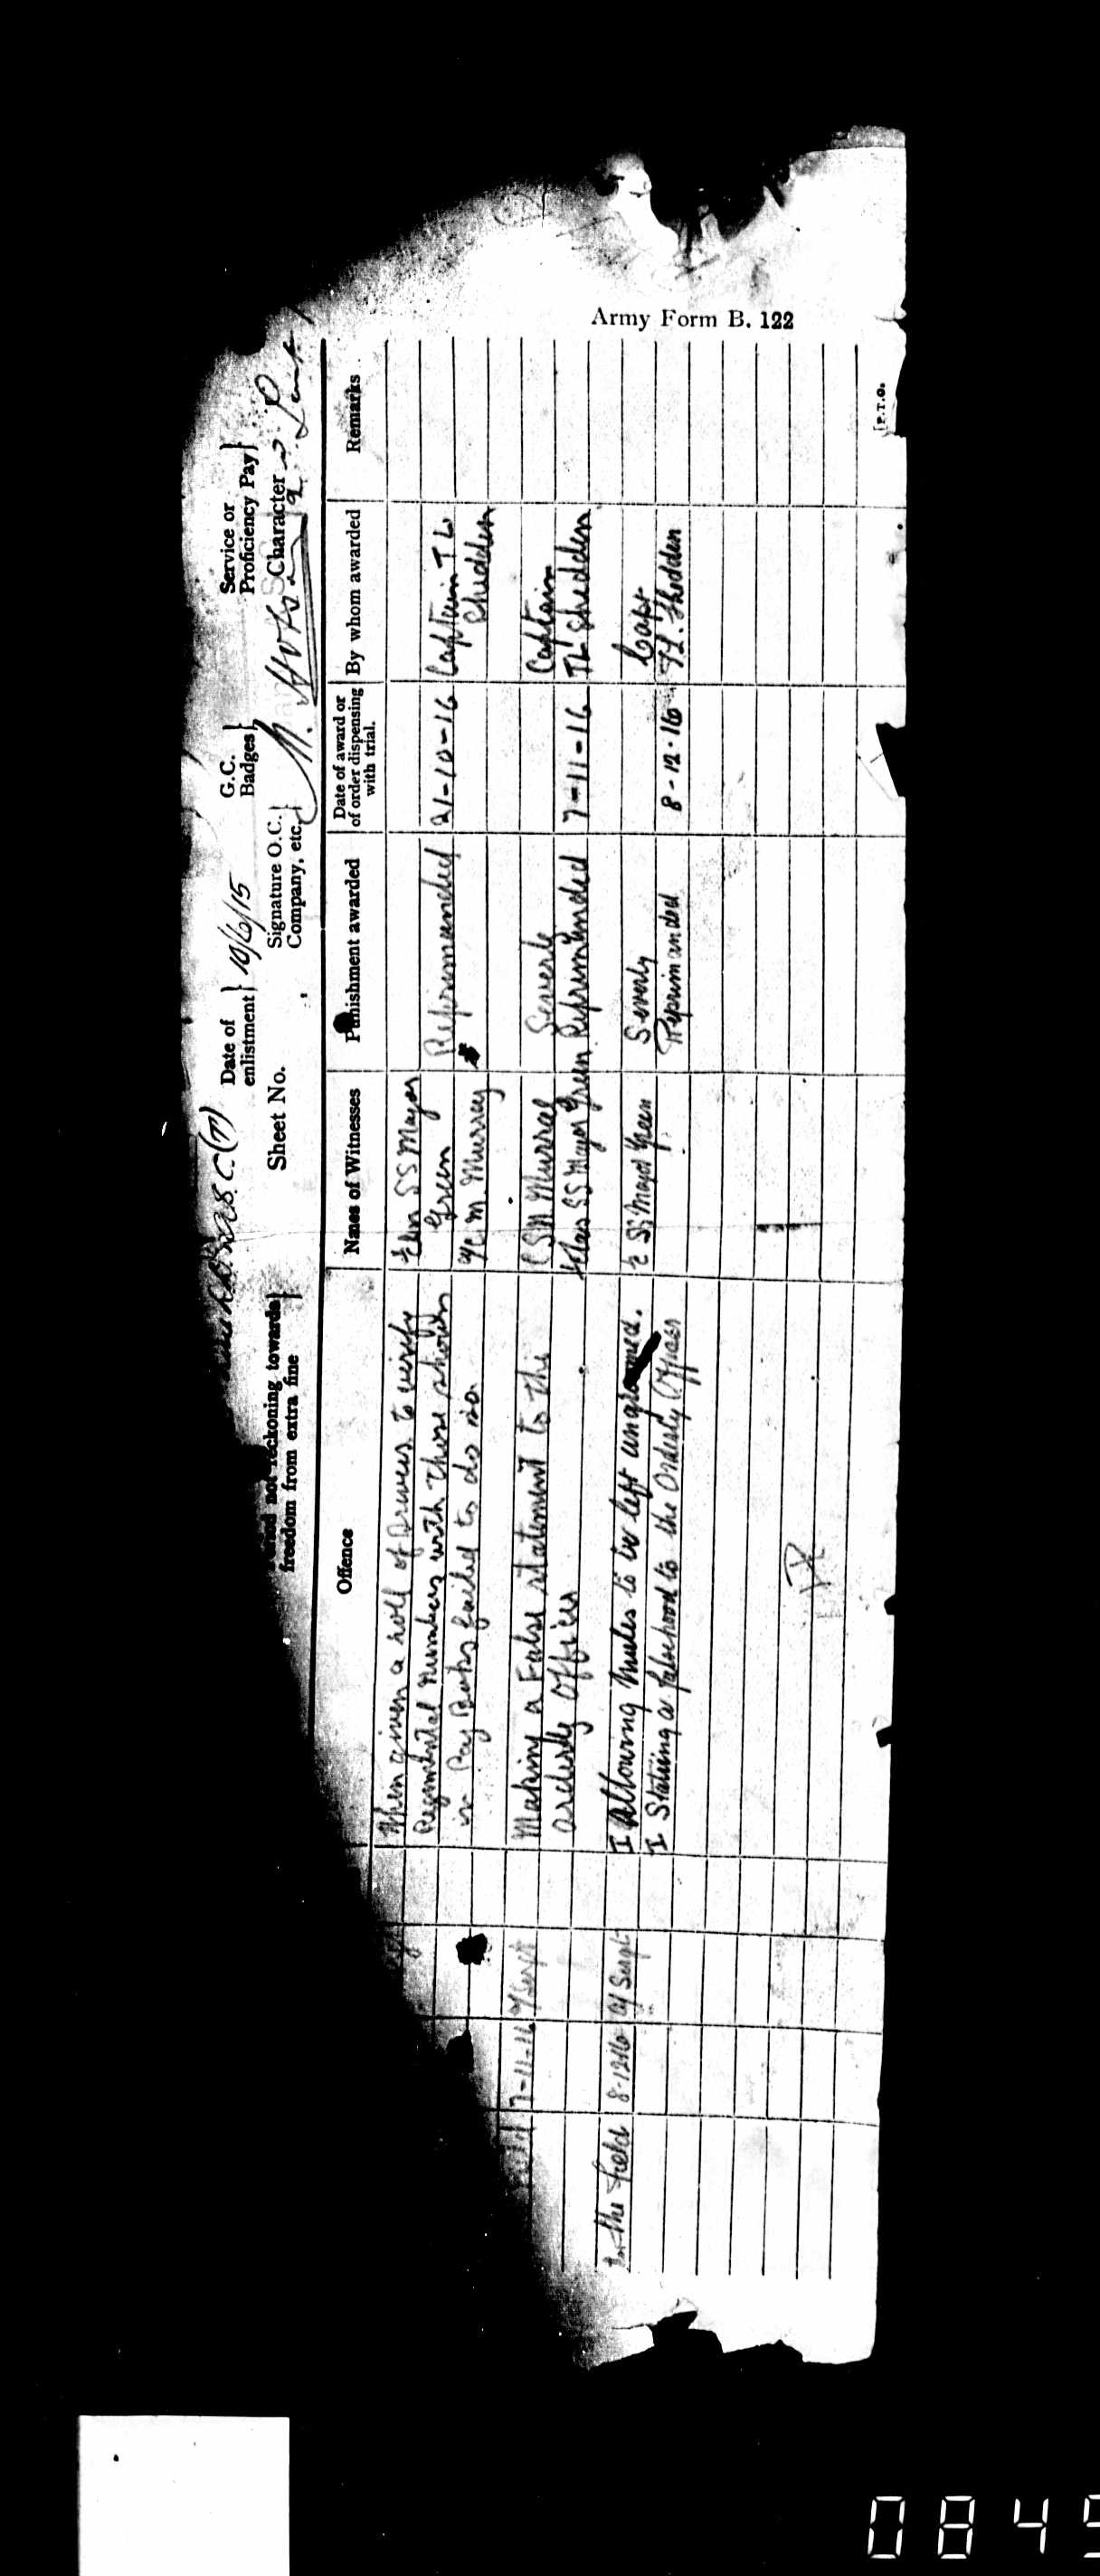 Army Form B. 122
Date of enlistment} 10/6/15
G.C. Badges}
Service or Proficiency Pay}
not reckoning towards freedom from extra fine}
Sheet No.
Signature O.C. Company, etc.}
Character
Offence
Names of Witnesses
Punishment awarded
Date of award or of order dispensing with trial.
By whom awarded
Remarks
When given a roll of Drivers to verify
Regimental Numbers with those shown
in Pay Books failed to do so.
SS Major
Green
M. Murray
Reprimanded
21-10-16
Captain T L
Shedden
7-11-16
a/Sergt
Making a False statement to the
orderly Officer
CSM Murral
SS Major Green
Severly
Reprimanded
7-11-16
Captain
TL Shedden
In the Field
8-12-16
a/Sergt
I Allowing Mules to be left ungroomed.
I Stating a falsehood to the Orderly Officer
SS Major Green
Severly
Reprimanded
8-12-16
Capt
T.L. Shedden
[P.T.O.
084